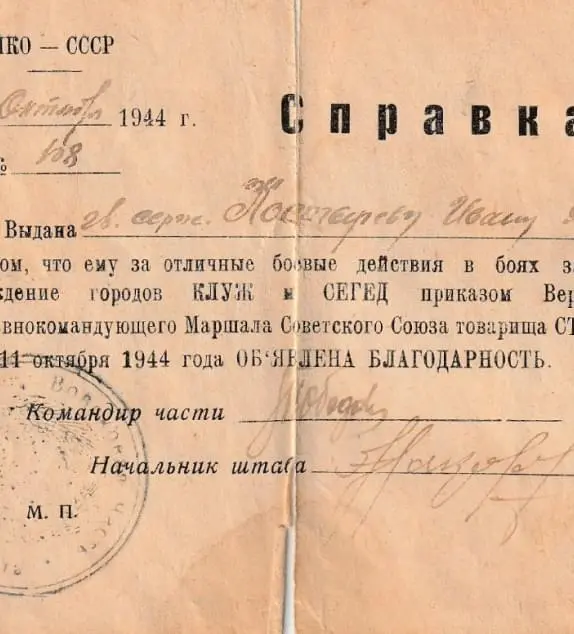 НКО — СССР
Октября 1944 г.
Справка
№ 108
Выдана гв. серж. Костыреву Ивану
ом, что ему за отличные боевые действия в боях з
ждение городов КЛУЖ и СЕГЕД приказом Вер
внокомандующего Маршала Советского Союза товарища СТ
11 октября 1944 года ОБ'ЯВЛЕНА БЛАГОДАРНОСТЬ.
Командир части
Начальник штаба
М. П.